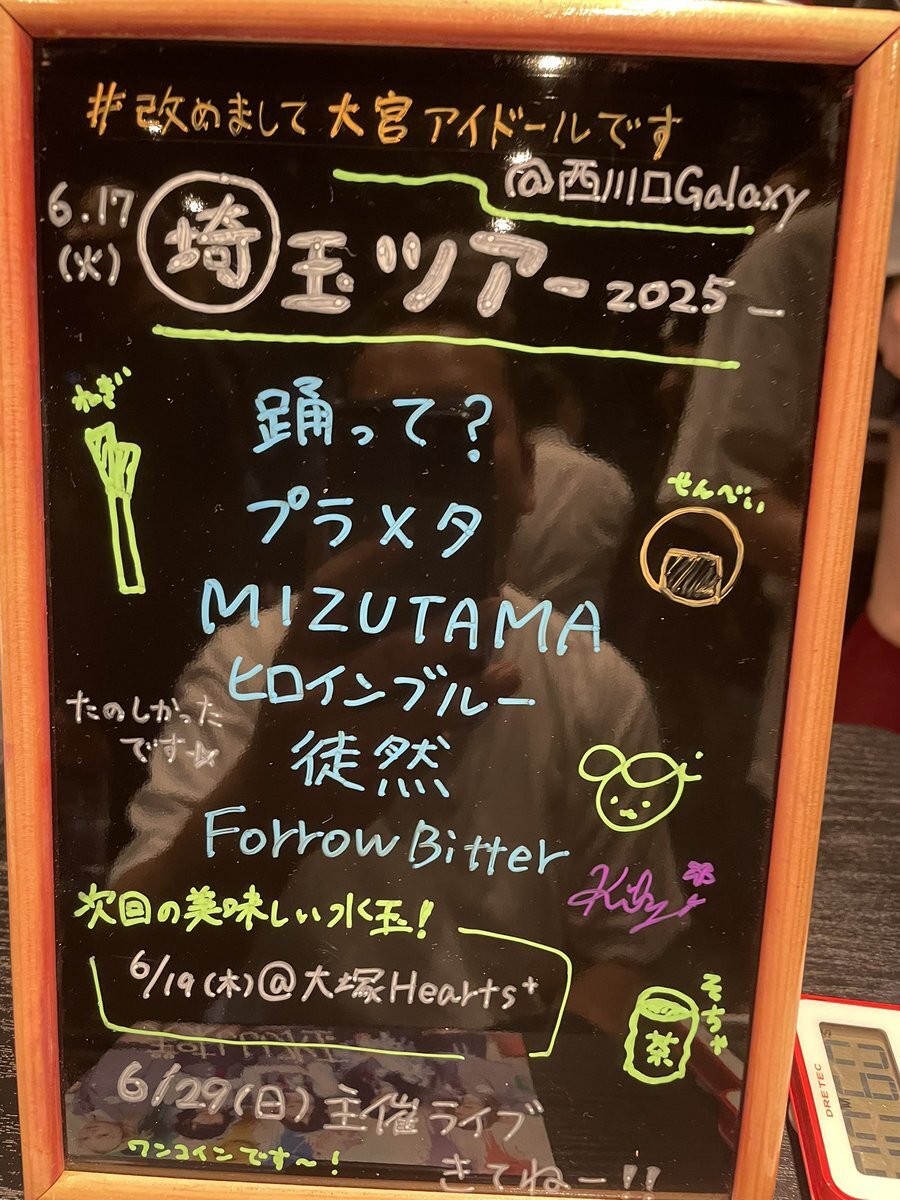 #改めまして大宮アイドールです
@西川口Galaxy
6.17
(火)
埼玉ツアー2025
ねぎ
踊って?
プラメタ
せんべい
MIZUTAMA
ヒロインブルー
たのしかった
です☆
徒然
Forrow Bitter
次回の美味しい水玉!
6/19(木)@大塚Hearts+
そちゃ
茶
6/29(日)主催ライブ
ワンコインです〜!
きてねー!!
DRETEC